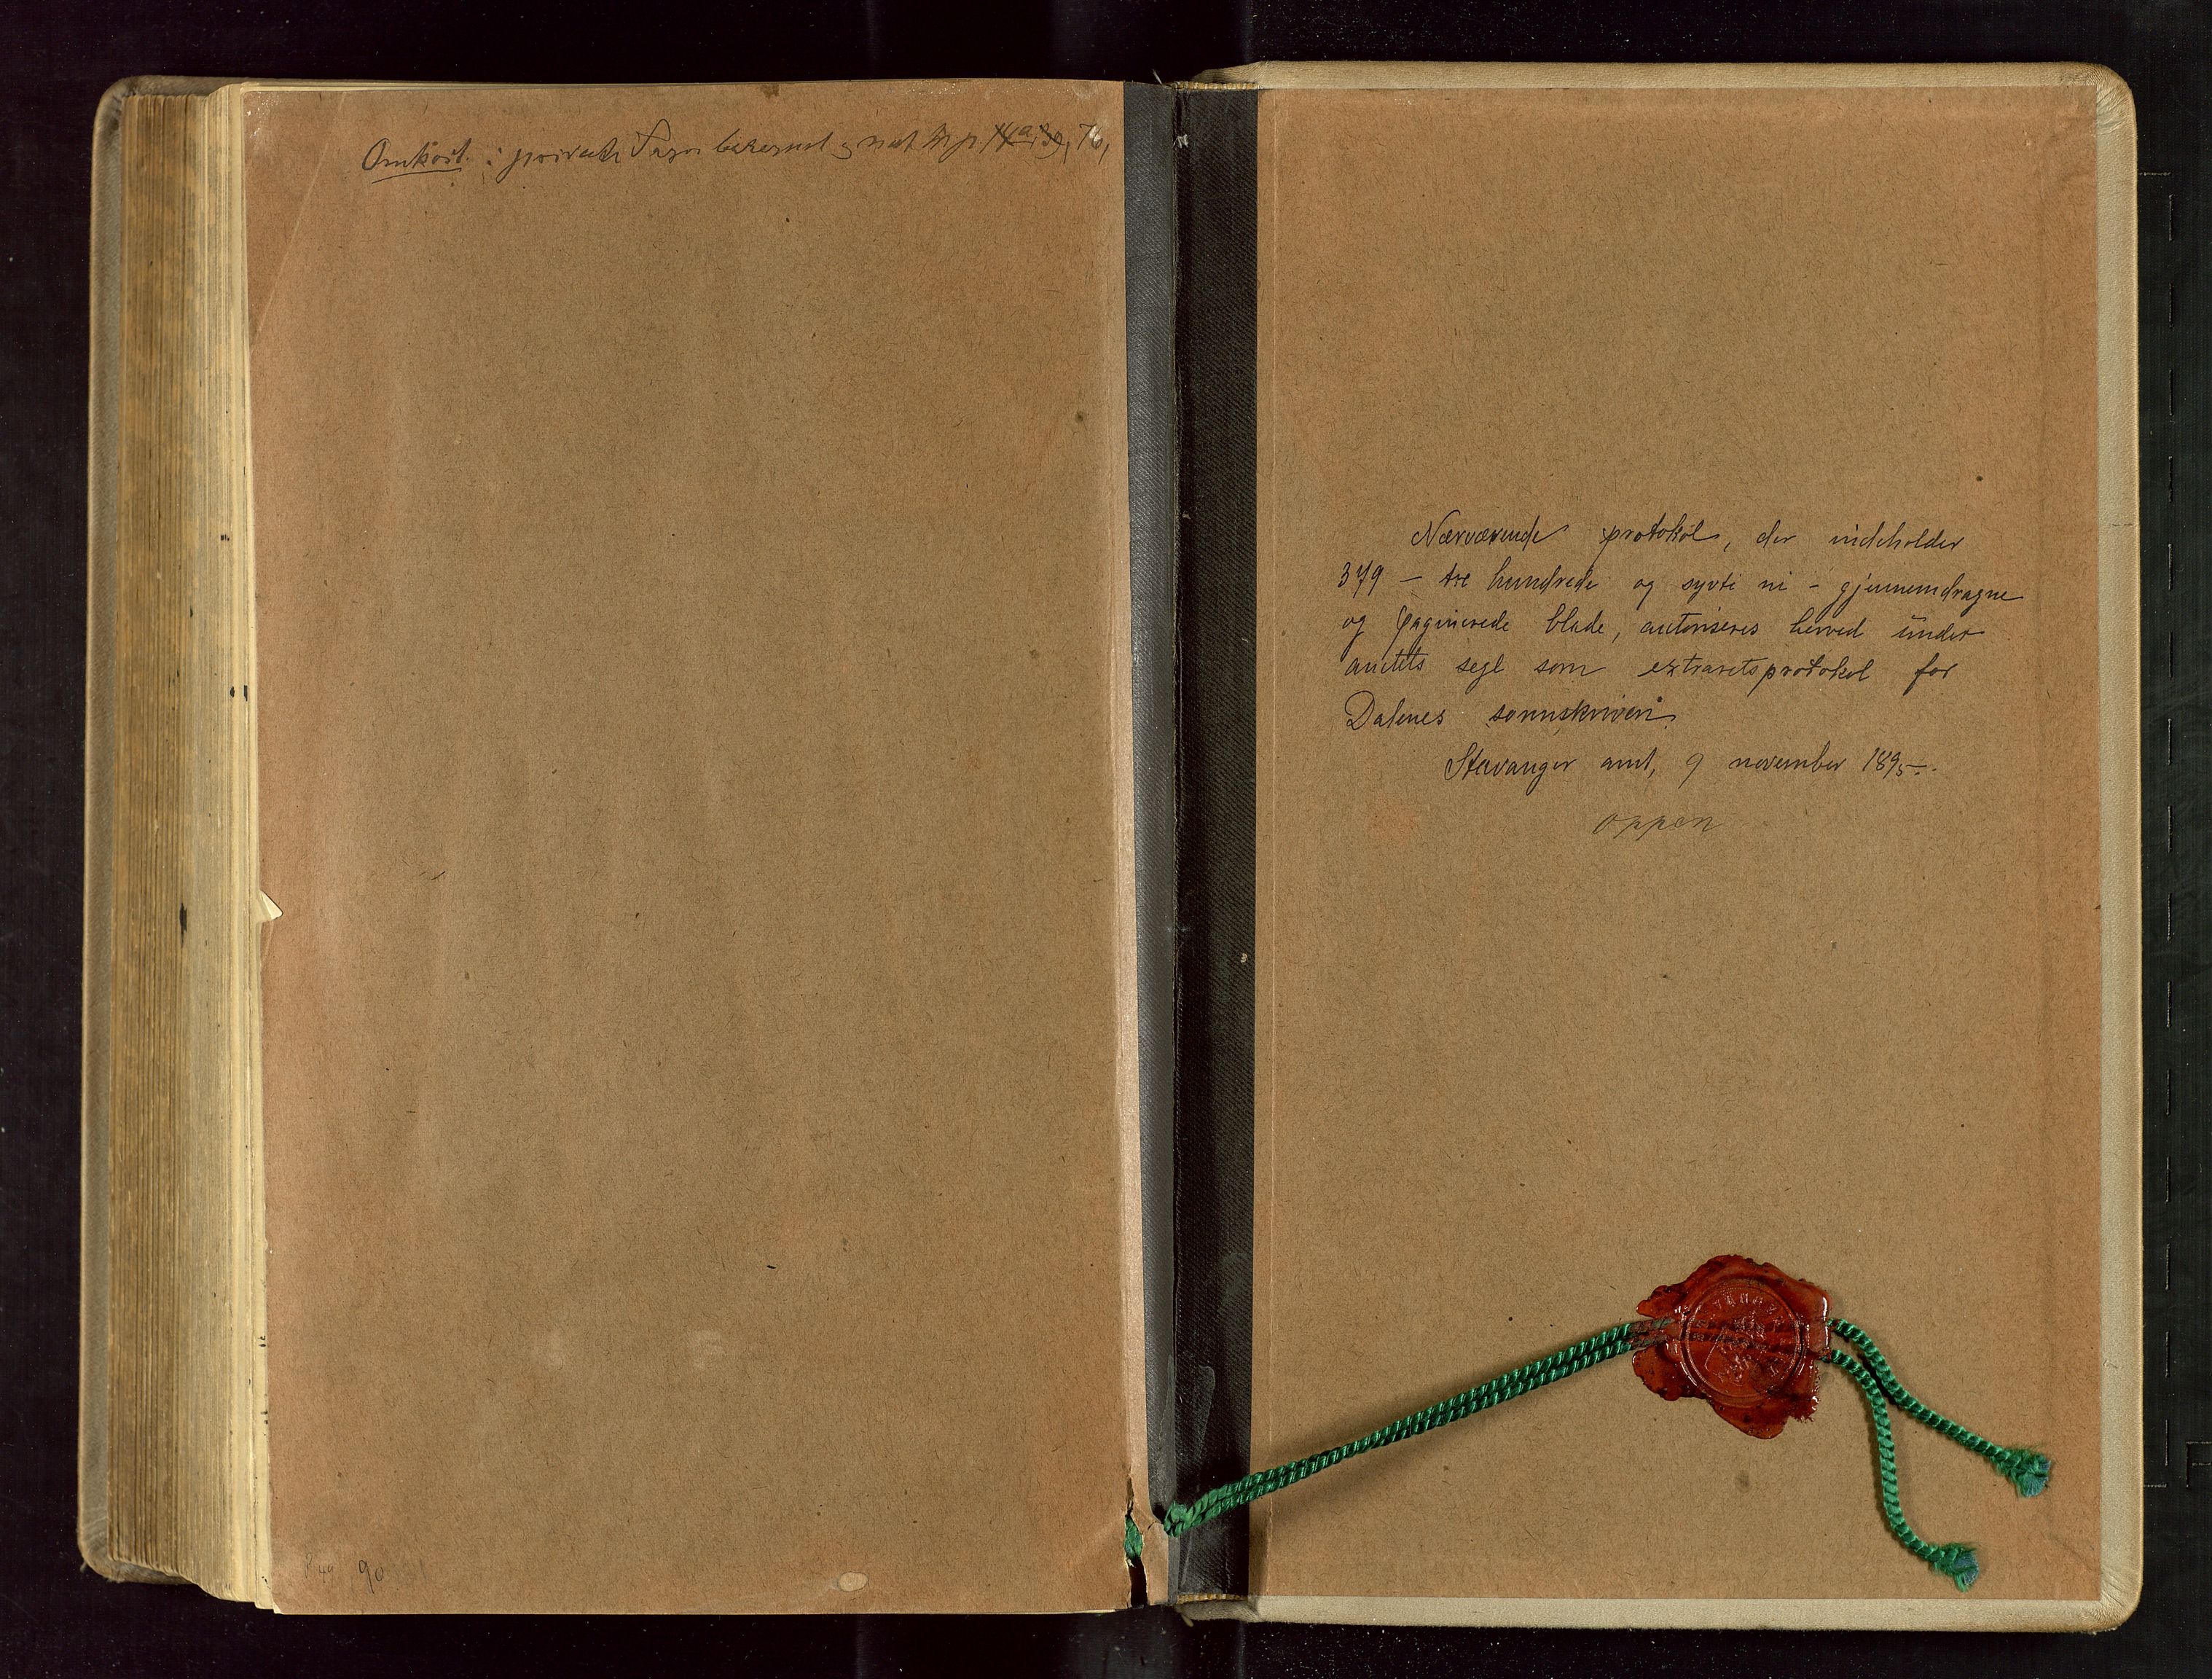 Omkost. i private Sager beregnet og 76,
Nærværende protokol, der indeholder
379 – tre hundrede og sytti ni – gjennemdragne
og paginerede blade, autoriseres herved under
amtets segl som extraretsprotokol for
Dalenes sorenskriveri.
Stavanger amt, 9 november 1895.
Oppen
90